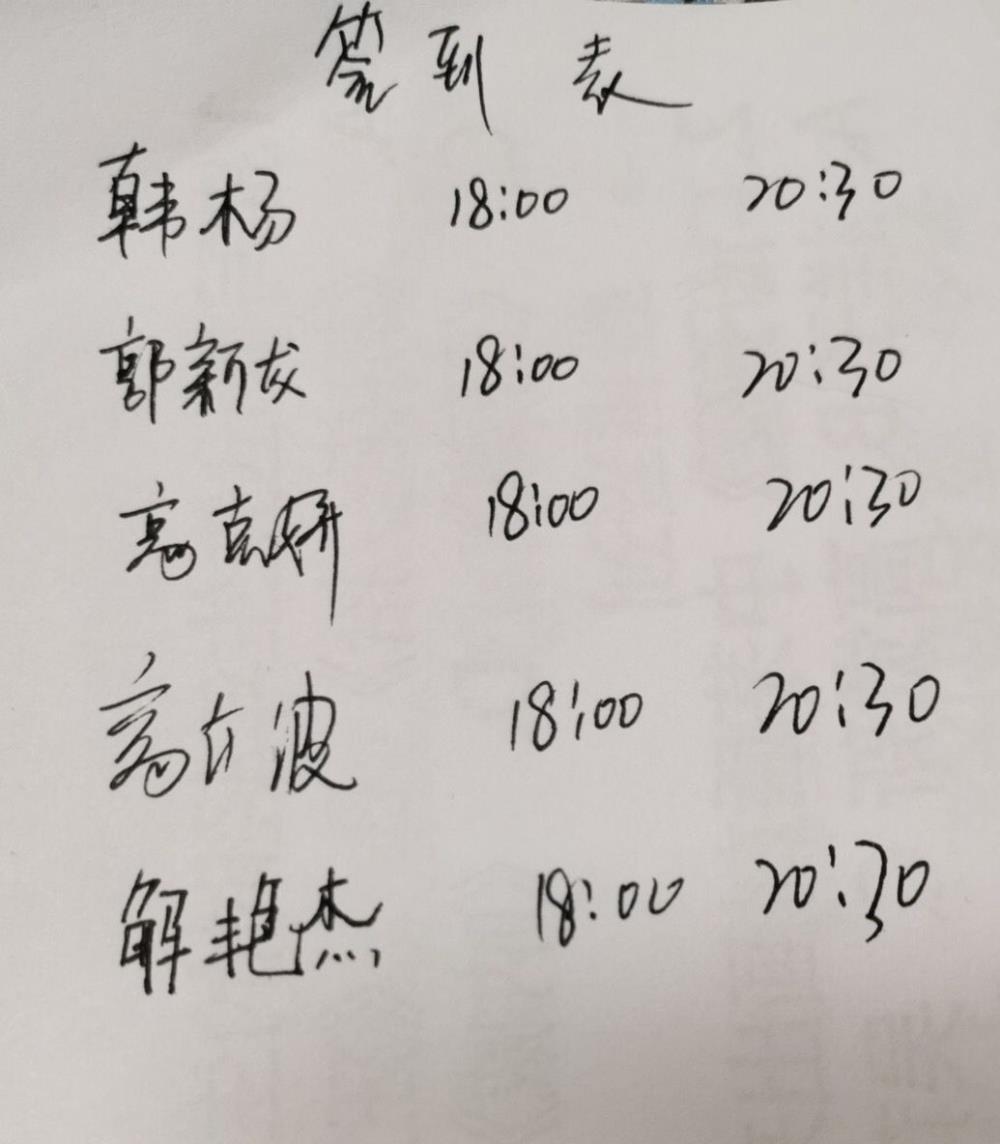 签到表
韩杨 18:00 20:30
郭新龙 18:00 20:30
高克妍 18:00 20:30
高波 18:00 20:30
解艳杰 18:00 20:30